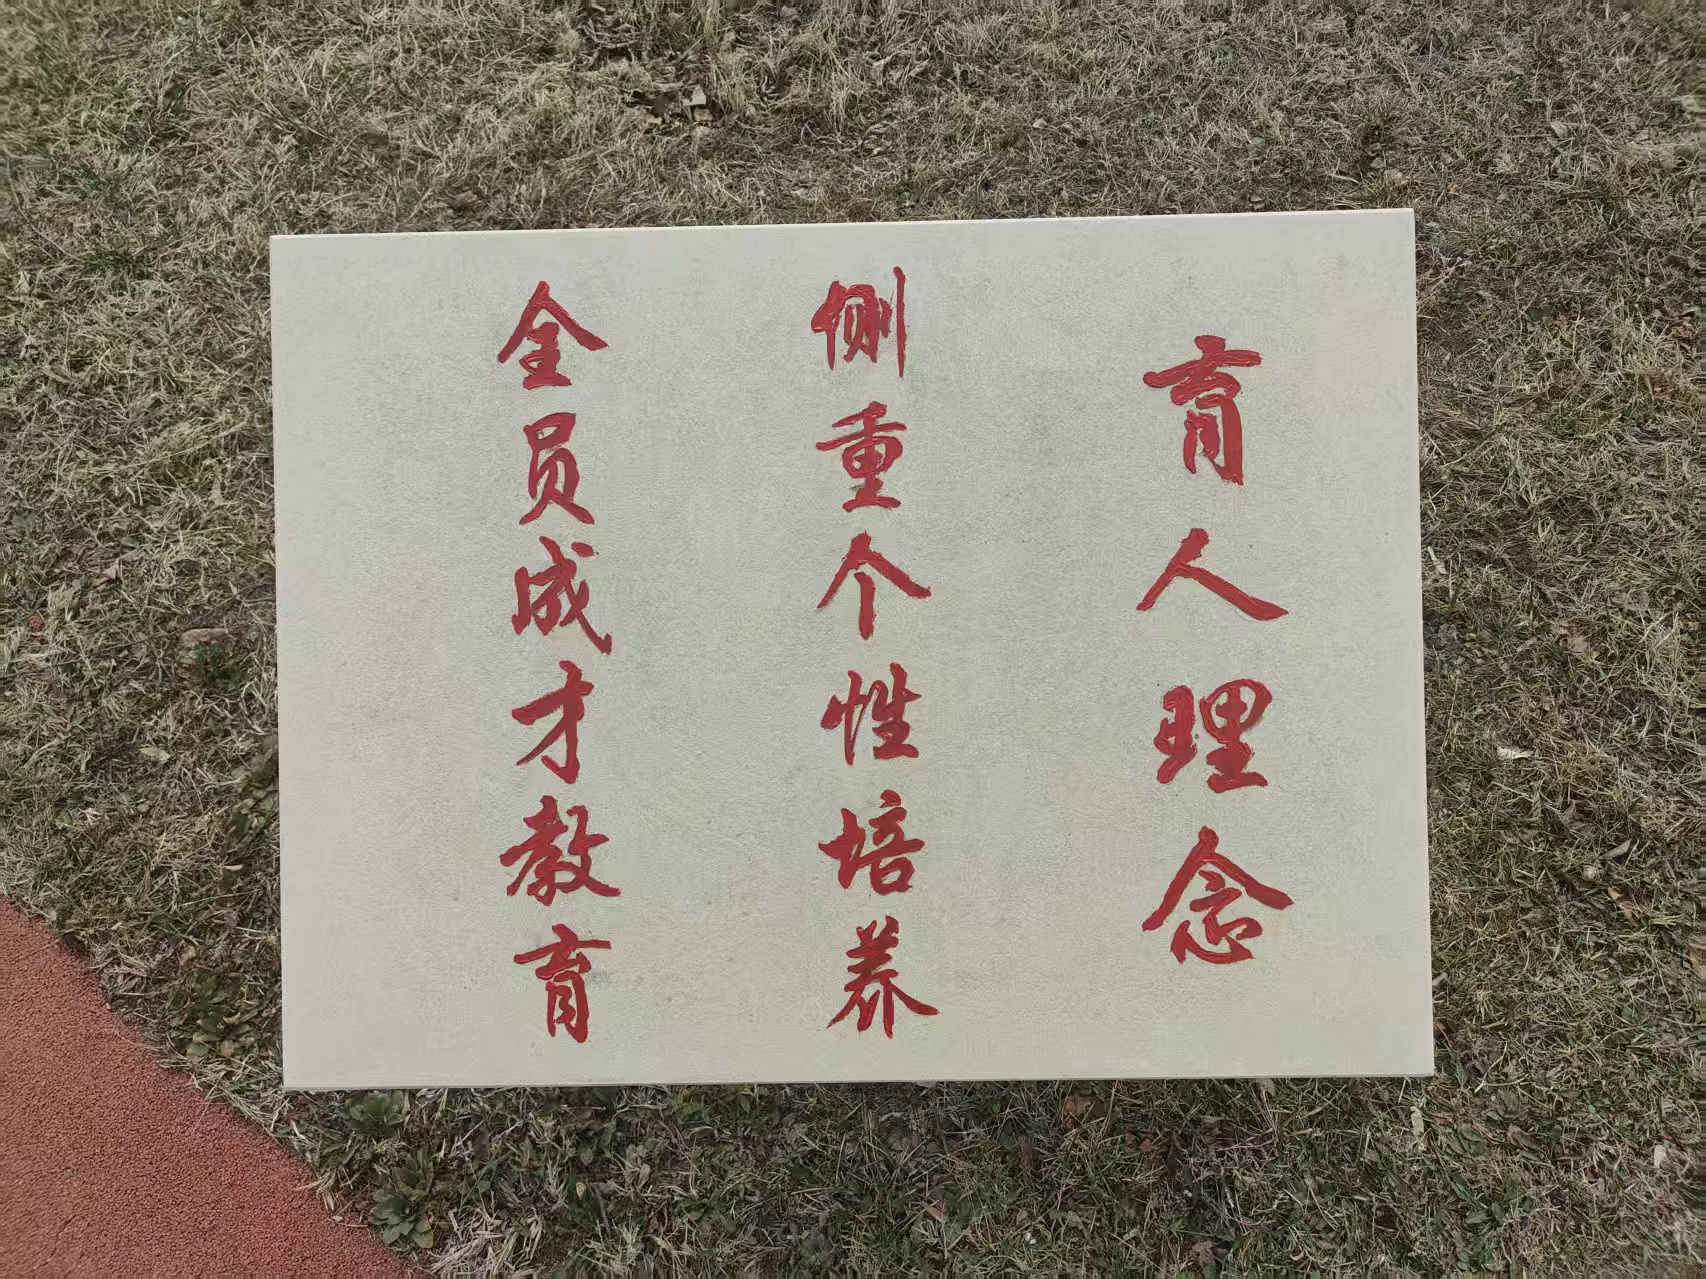 育人理念
侧重个性培养
全员成才教育